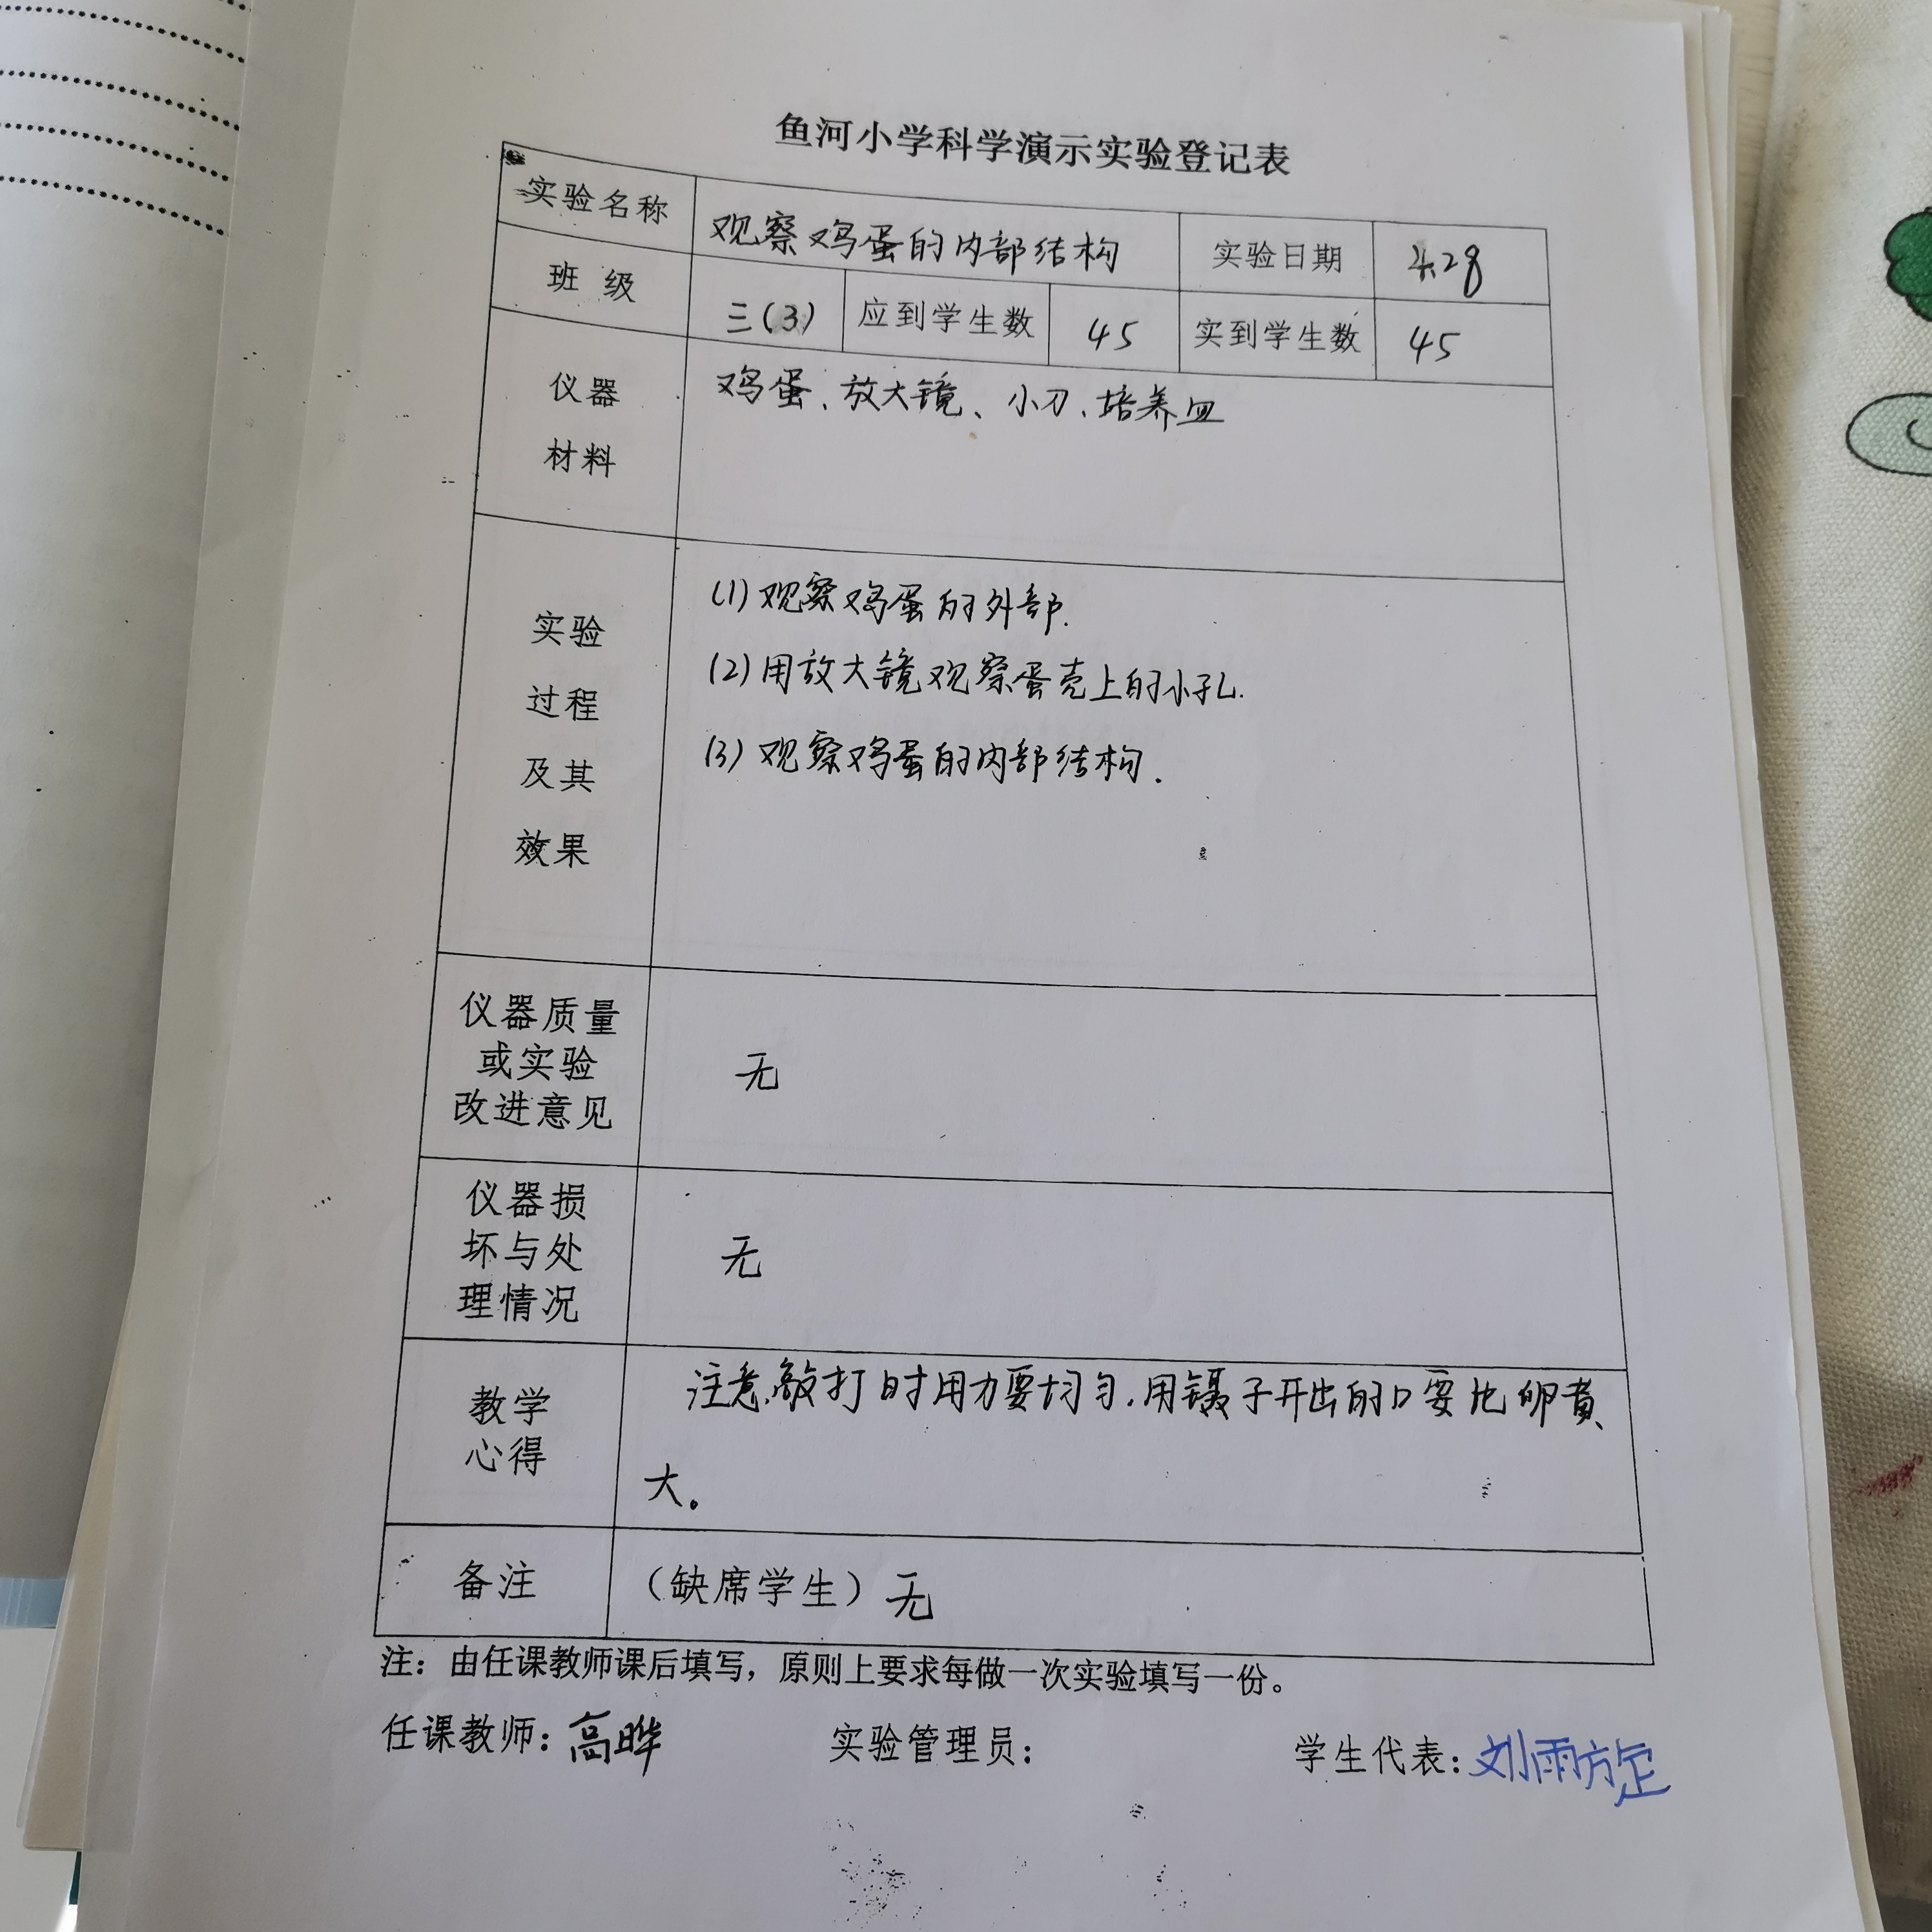 鱼河小学科学演示实验登记表
实验名称 观察鸡蛋的内部结构 实验日期 4.28
班 级 三(3) 应到学生数 45 实到学生数 45
仪器 鸡蛋、放大镜、小刀、培养皿
材料
(1)观察鸡蛋的外部.
实验
(2)用放大镜观察蛋壳上的小孔.
过程
(3)观察鸡蛋的内部结构.
及其
效果
仪器质量
或实验 无
改进意见
仪器损
坏与处 无
理情况
教学 注意,敲打时用力要均匀,用镊子开出的口要比卵黄
心得
大。
备注 (缺席学生)无
注：由任课教师课后填写，原则上要求每做一次实验填写一份。
任课教师：高晔 实验管理员： 学生代表：刘雨